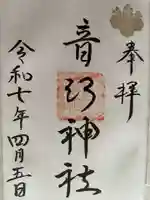 奉拝
音羽神社
令和七年四月五日